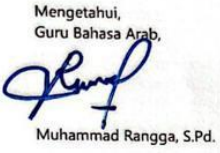 Mengetahui,
Guru Bahasa Arab,
Muhammad Rangga, S.Pd.